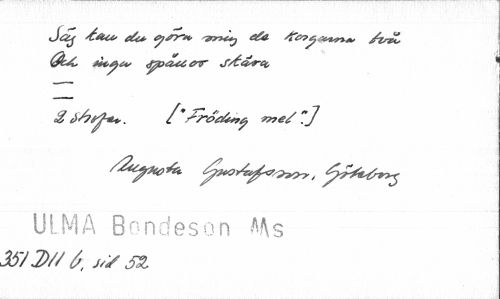 Säg kan du göra mig de korgarna två
Och inga spånor skära
—
—
2 strofer. ["Fröding mel".]
Augusta Gustafsson, Göteborg
ULMA Bondeson Ms
351 D11 b, sid 52